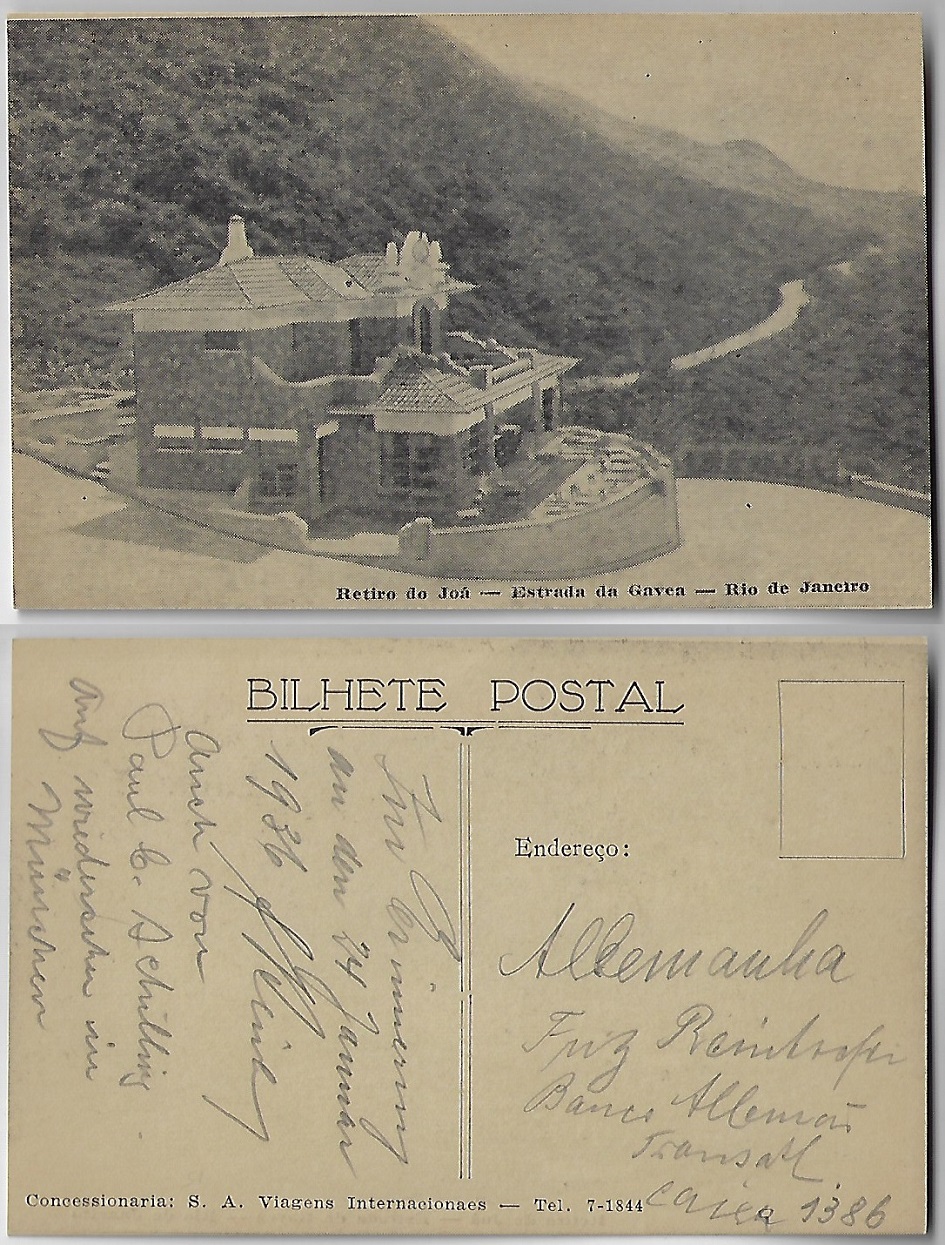 Retiro do Joá — Estrada da Gavea — Rio de Janeiro
BILHETE POSTAL
Zur Erinnerung
an den 24 Januar
1936
Auch von
Paul C. Schilling
Auf wiedersehen in
München
Endereço:
Allemanha
Fritz
Banco Allemão
Transatl.
Caixa 1386
Concessionaria: S. A. Viagens Internacionaes — Tel. 7-1844